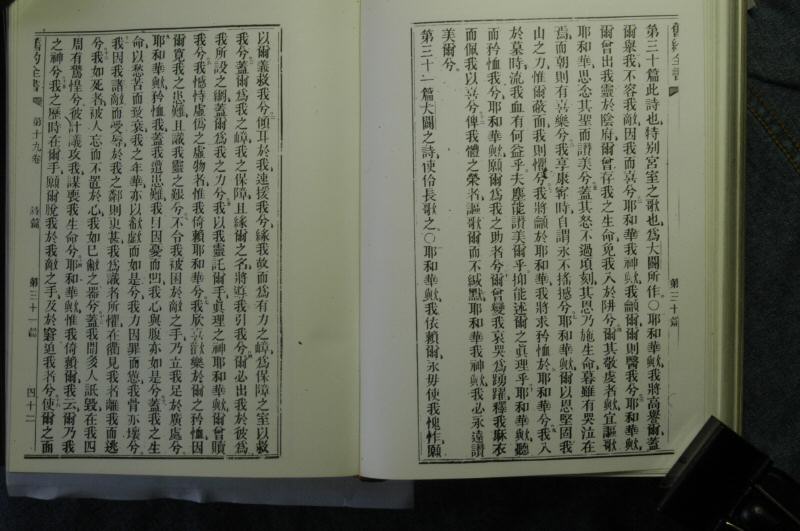 舊約全書
第三十篇
第三十篇此詩也特别宮室之歌也爲大闢所作〇耶和華歟我將高譽爾蓋
爾舉我不容我敵因我而喜兮耶和華我神歟我籲爾爾則醫我兮耶和華歟
爾曾出我靈於陰府爾曾存我之生命免我入於阱兮爾其敬虔者歟宜謳歌
耶和華思念其聖而讚美兮蓋其怒不過頃刻其恩乃施生命暮雖有哭泣在
焉而朝則有喜樂兮我享康寧時自謂永不搖撼兮耶和華歟爾以恩堅固我
山之力惟爾蔽面我則懼兮我將籲於耶和華我將求矜恤於耶和華兮我入
於墓時流我血有何益乎夫塵能讚美爾乎抑能述爾之眞理乎耶和華歟聽
而矜恤我兮耶和華歟願爾爲我之助者兮爾曾變我哀哭爲踴躍釋我麻衣
而佩我以喜兮俾我體之榮名謳歌爾而不緘默耶和華我神歟我必永遠讚
美爾兮
第三十一篇大闢之詩使伶長歌之〇耶和華歟我依賴爾永毋使我愧怍願
以爾義救我兮傾耳於我速援我兮緣我故而爲有力之嶂爲保障之室以救
我兮蓋爾爲我之嶂我之保障且緣爾之名將導我引我兮爾必出我於彼爲
我所設之網蓋爾爲我之力兮我以我靈託爾手眞理之神耶和華歟爾曾贖
我兮我憾恃虛僞之虛物者惟我倚賴耶和華兮我欣喜歡樂於爾之矜恤因
爾覽我之患難且識我靈之艱兮不令我被困於敵之手乃立我足於廣處兮
耶和華歟矜恤我蓋我遭患難我目因憂而凹我心與腹亦如是兮蓋我之生
命以愁苦而致衰我之年華亦以歎獻而如是兮我力因罪而憊我骨亦壞兮
我因我諸敵而受辱於我之鄰則更甚我爲識者所懼在衢見我者離我而逃
兮我如死者被人忘而不置於心我如已敝之器兮蓋我聞多人詆毀在我四
周有驚惶兮彼計議攻我謀喪我生命兮耶和華歟惟我倚賴爾我云爾乃我
之神兮我之歷時在爾手願爾脫我於我敵之手及於窘迫我者兮使爾之面
舊約全書
第十九卷
詩篇
第三十一篇
四十二